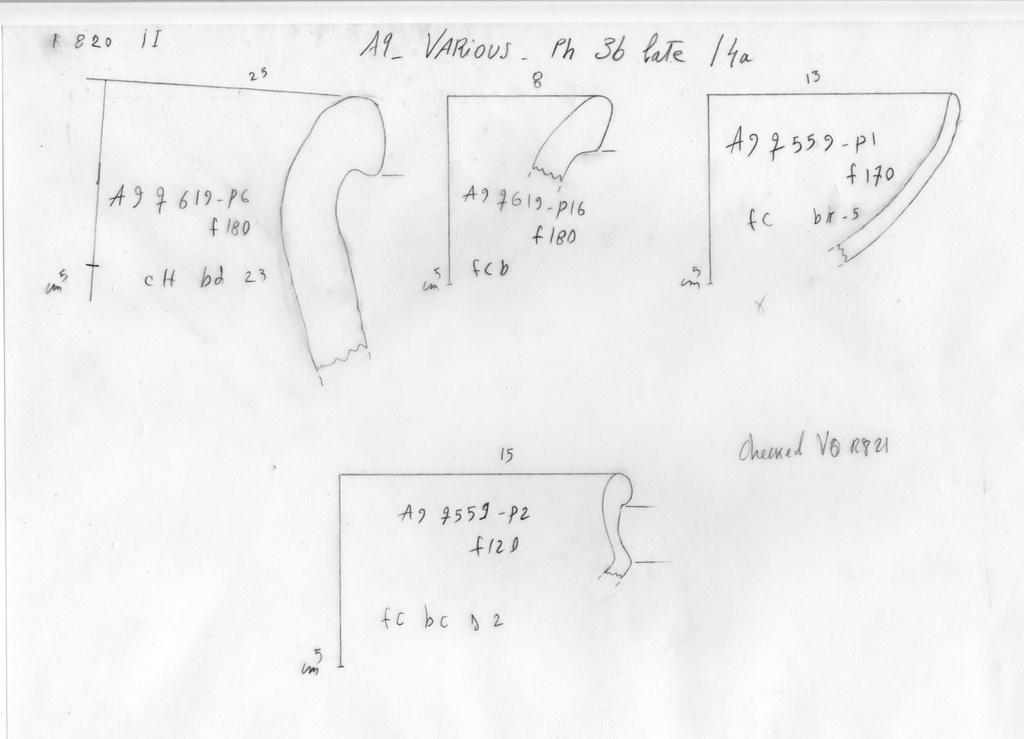 820 II
A9_ VARIOUS_ Ph 3b late /4a
25
A9 7619-P6
f180
cH bd 23
5
cm
8
A9 7619-P16
f180
fcb
5
cm
13
A9 7559-P1
f170
fc
5
cm
checked VO R821
15
A9 7559-P2
f120
fc bc s 2
5
cm